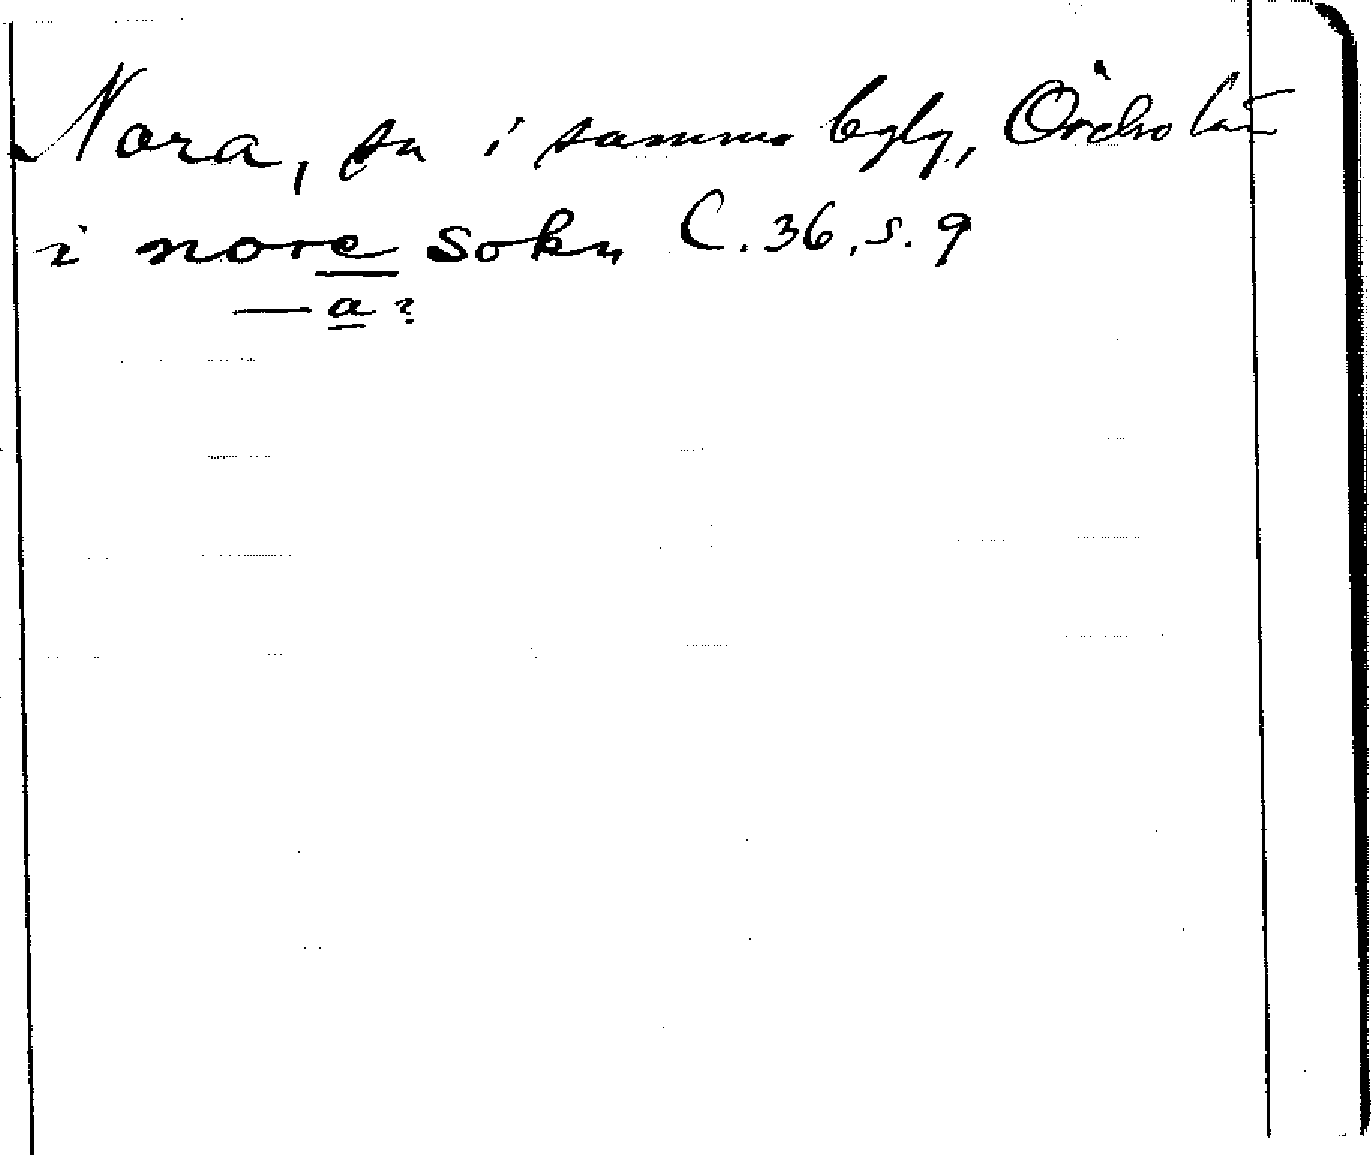 Nora, sn i samma bgly, Örebro län
i nore sokn C. 36, s. 9
— a ?